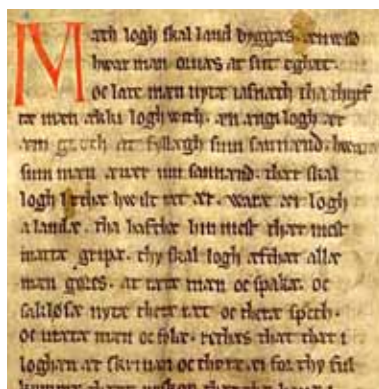 Mæth logh skal land byggas. æn wild
hwar man oruæs at sit eghæt.
oc latæ mæn nytæ iafnæth tha thyrf
tæ mæn ækki logh with. æn ængi logh ær
æm goth at fyllægh sum sannænd. hwaræ
sum man æuær um sannænd. thær skal
logh letæ hwilt ræt ær. waræ æi logh
a landæ. tha hafthæ hin mest thær mest
mattæ gripæ. thy skal logh æfthær allæ
man gøres. at rætæ mæn oc spakæ. oc
saklosæ nytæ theræ ræt oc theræ spech.
oc uretæ mæn oc folæ. rethes thæt thær i
loghæn ær skriuan oc thoræ. ei for thy ful